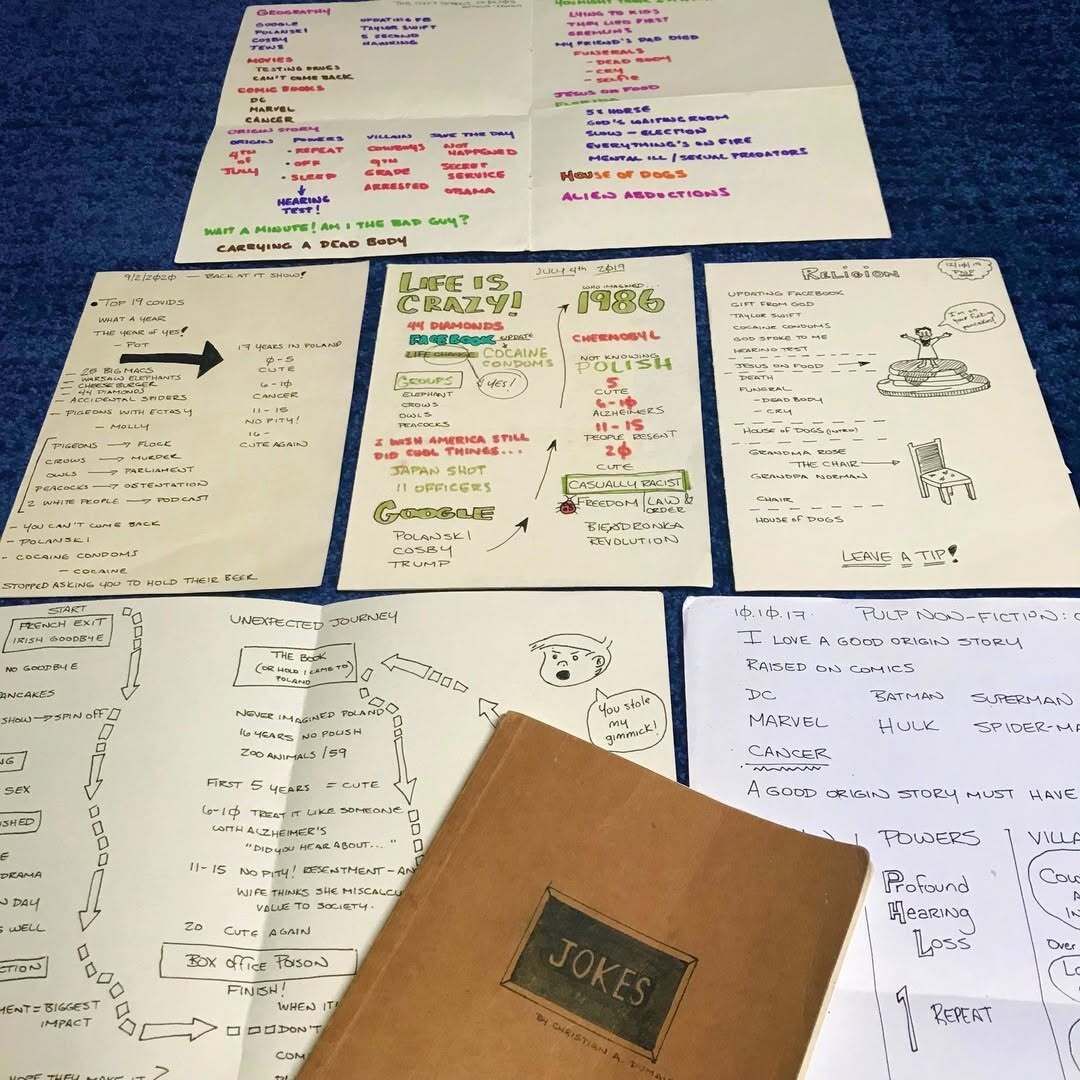 GEOGRAPHY
GOOGLE
POLANSKI
COSBY
JEWS
UPDATING FB
TAYLOR SWIFT
5 SECOND
HAWKING
MOVIES
TESTING DRUGS
CAN'T COME BACK
COMIC BOOKS
DC
MARVEL
CANCER
ORIGIN STORY
ORIGIN
4TH
OF
JULY
POWERS
• REPEAT
• OFF
• SLEEP
HEARING
TEST!
VILLAIN
COWBOYS
9TH
GRADE
ARRESTED
SAVE THE DAY
NOT
HAPPENED
SECRET
SERVICE
OBAMA
WAIT A MINUTE! AM I THE BAD GUY?
CARRYING A DEAD BODY
LYING TO KIDS
THEY LIED FIRST
GREMLINS
MY FRIEND'S DAD DIED
FUNERALS
- DEAD BODY
- CRY
- SELFIE
JESUS ON FOOD
FLORIDA
5¢ HORSE
GOD'S WAITING ROOM
SLOW - ELECTION
EVERYTHING'S ON FIRE
MENTAL ILL / SEXUAL PREDATORS
HOUSE OF DOGS
ALIEN ABDUCTIONS
9/2/2020 — BACK AT IT SHOW!
• TOP 19 COVIDS
WHAT A YEAR
THE YEAR OF YES!
- POT
- 28 BIG MACS
- WARSAW ELEPHANTS
- CHEESEBURGER
- 44 DIAMONDS
- ACCIDENTAL SPIDERS
- PIGEONS WITH ECTASY
- MOLLY
PIGEONS → FLOCK
CROWS → MURDER
OWLS → PARLIAMENT
PEACOCKS → OSTENTATION
2 WHITE PEOPLE → PODCAST
- YOU CAN'T COME BACK
- POLANSKI
- COCAINE CONDOMS
- COCAINE
STOPPED ASKING YOU TO HOLD THEIR BEER
17 YEARS IN POLAND
0-5
CUTE
6-10
CANCER
11-15
NO PITY!
16-
CUTE AGAIN
JULY 4TH 2019
LIFE IS
CRAZY!
44 DIAMONDS
FACEBOOK UPDATE
COCAINE
CONDOMS
YES!
GROUPS
ELEPHANT
CROWS
OWLS
PEACOCKS
I WISH AMERICA STILL
DID COOL THINGS...
JAPAN SHOT
11 OFFICERS
GOOGLE
POLANSKI
COSBY
TRUMP
WHO IMAGINED...
1986
CHERNOBYL
NOT KNOWING
POLISH
5
CUTE
6-10
ALZHEIMERS
11-15
PEOPLE RESENT
20
CUTE
CASUALLY RACIST
FREEDOM | LAW &
ORDER
BIEDRONKA
REVOLUTION
RELIGION
12/10/19
UPDATING FACEBOOK
GIFT FROM GOD
TAYLOR SWIFT
COCAINE CONDOMS
GOD SPOKE TO ME
HEARING TEST
JESUS ON FOOD
DEATH
FUNERAL
- DEAD BODY
- CRY
HOUSE OF DOGS (INTRO)
GRANDMA ROSE
THE CHAIR
GRANDPA NORMAN
CHAIR
HOUSE OF DOGS
I'm on
your fucking
pancakes!
LEAVE A TIP!
START
FRENCH EXIT
IRISH GOODBYE
NO GOODBYE
PANCAKES
SHOW → SPIN OFF
SEX
DRAMA
DAY
WELL
= BIGGEST
IMPACT
HOPE THEY MAKE IT
UNEXPECTED JOURNEY
THE BOOK
(OR HOW I CAME TO)
POLAND
NEVER IMAGINED POLAND
16 YEARS NO POLISH
200 ANIMALS / 59
FIRST 5 YEARS = CUTE
6-10 TREAT IT LIKE SOMEONE
WITH ALZHEIMER'S
"DID YOU HEAR ABOUT..."
11-15 NO PITY! RESENTMENT - AN
WIFE THINKS SHE MISCALCU
VALUE TO SOCIETY.
20 CUTE AGAIN
BOX OFFICE POISON
FINISH!
WHEN IT
DON'T
COM
You stole
my
gimmick!
10.10.17 PULP NON-FICTION:
I LOVE A GOOD ORIGIN STORY
RAISED ON COMICS
DC BATMAN SUPERMAN
MARVEL HULK SPIDER-MA
CANCER
A GOOD ORIGIN STORY MUST HAVE
POWERS
Profound
Hearing
Loss
REPEAT
VILLA
OVER
JOKES
BY CHRISTIAN A. DUMA